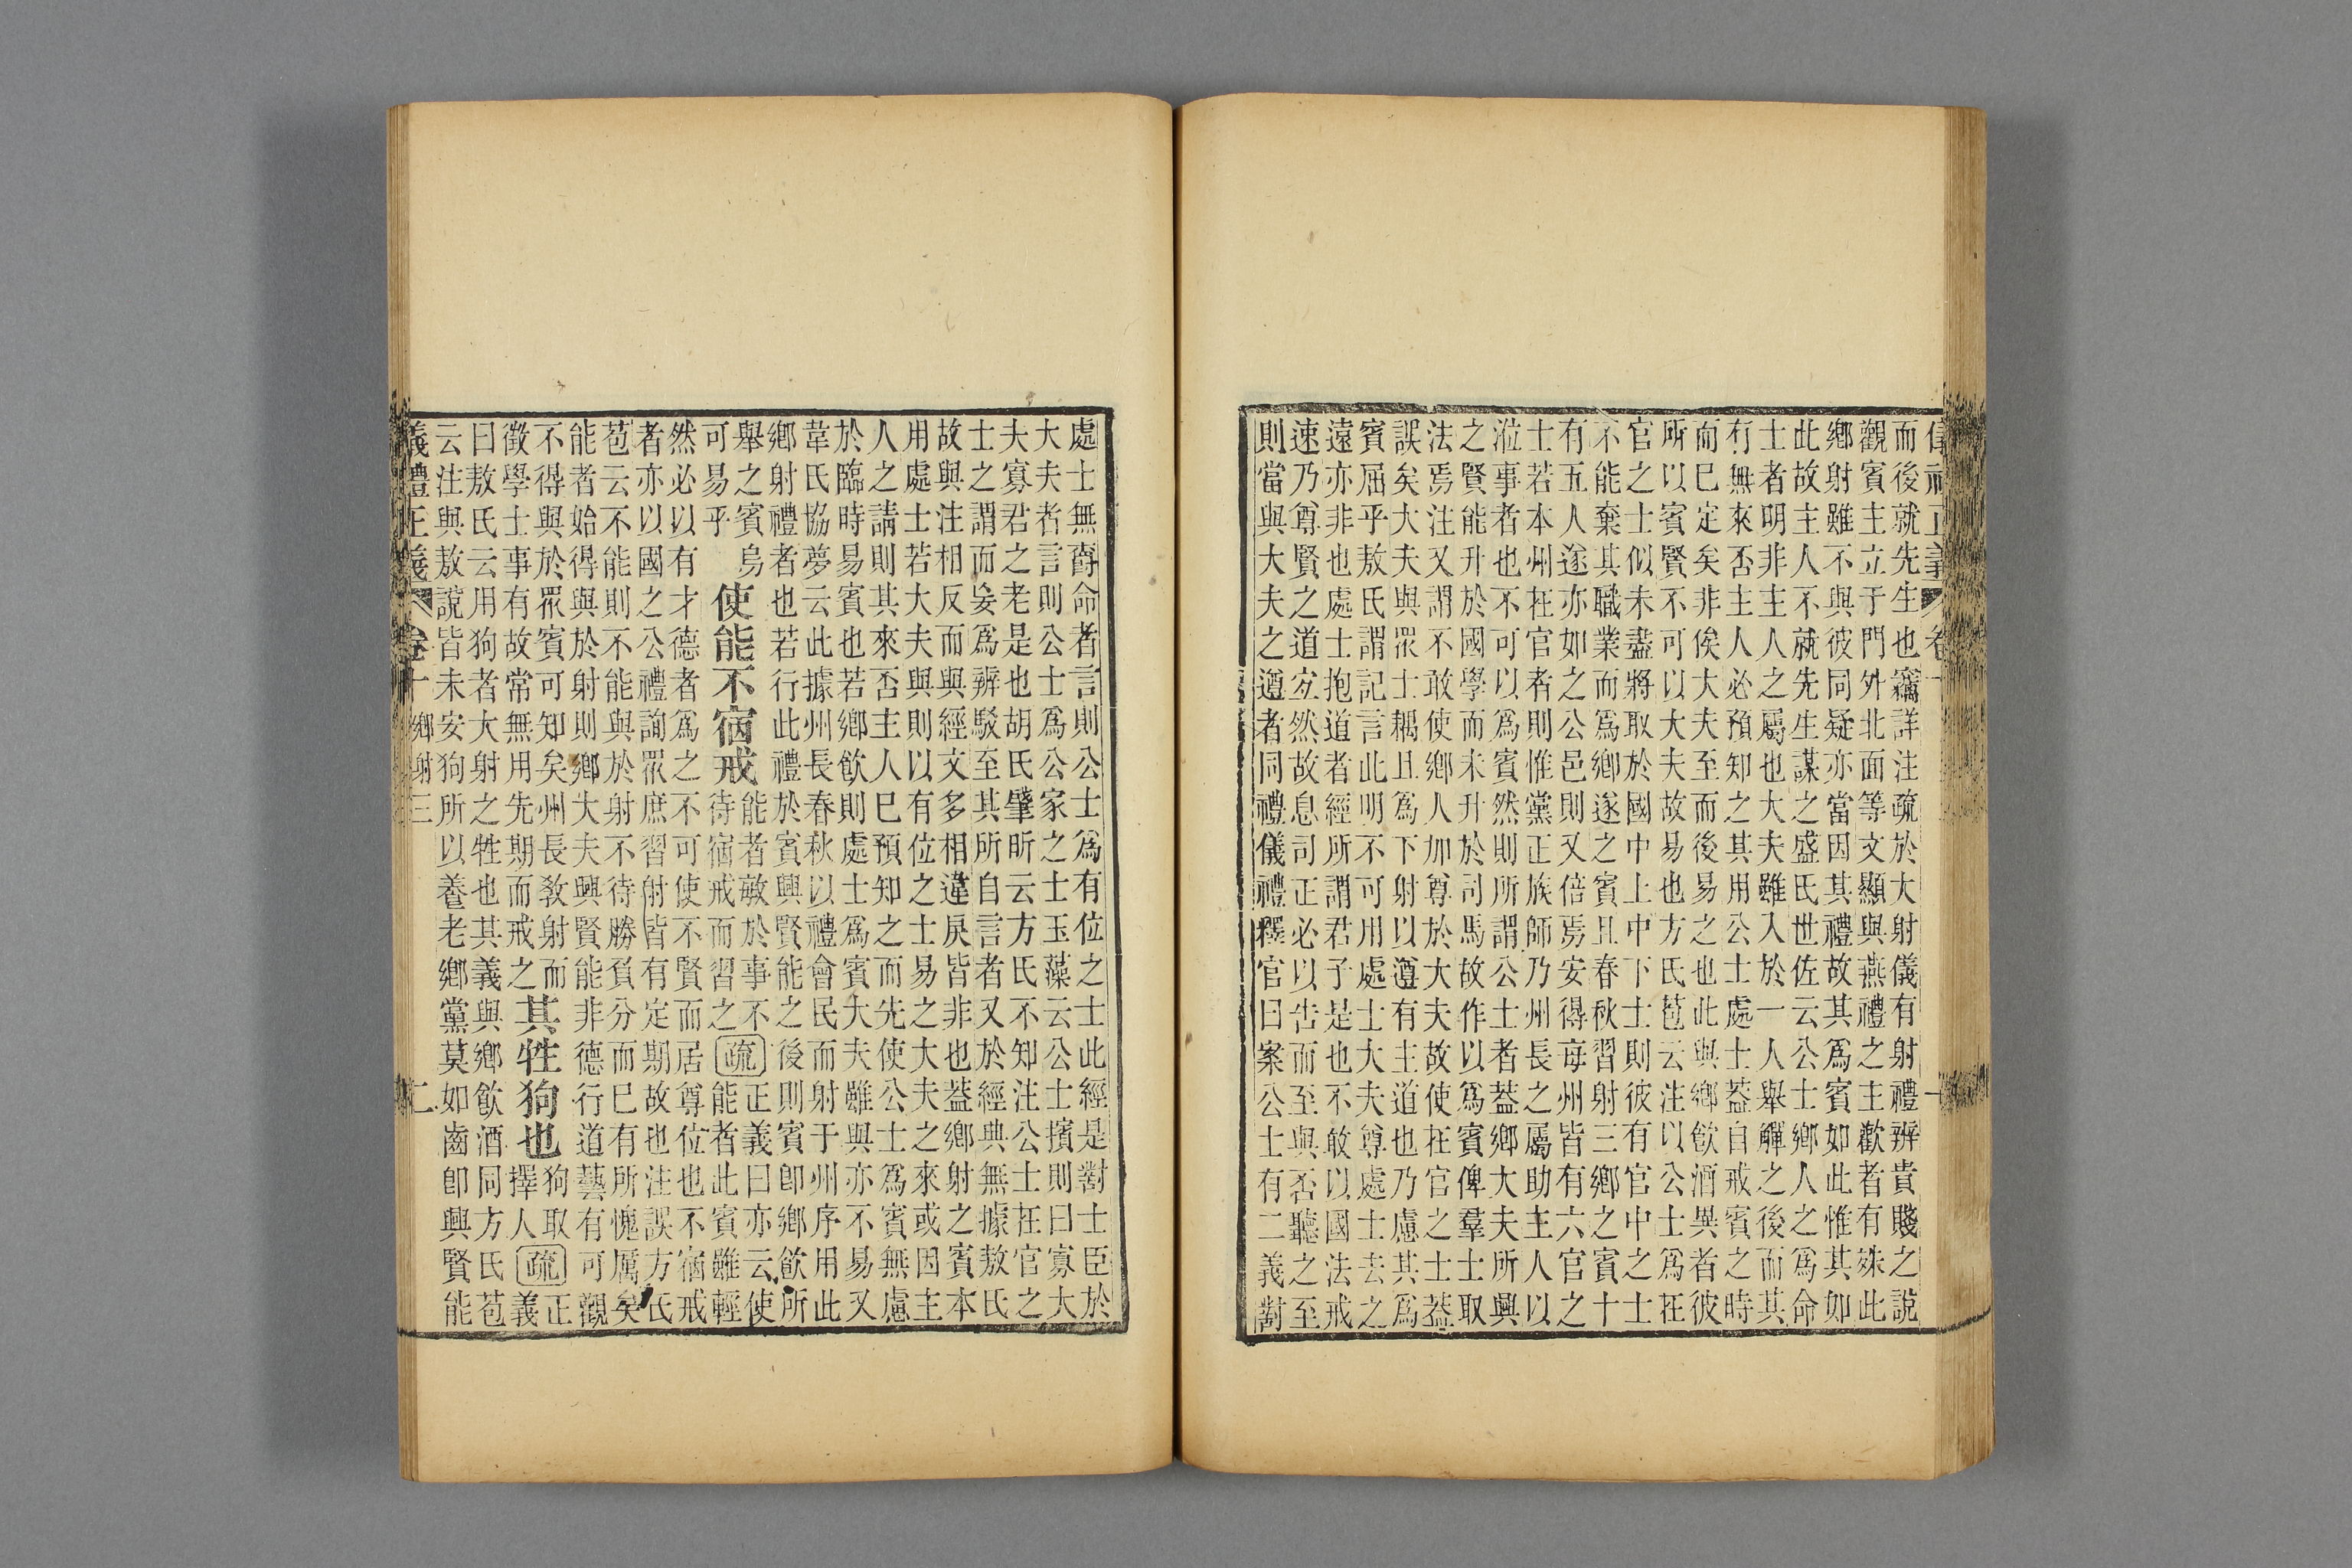 儀禮正義 卷十
而後就先生也竊詳注疏於大射儀有射禮辨貴賤之說
觀賓主立于門外北面等文顯與燕禮之主歡者有殊此
鄉射雖不與彼同疑亦當因其禮故其爲賓如此惟其如
此故主人不就先生謀之盛氏世佐云公士鄉人之爲命
士者明非主人之屬也大夫雖入於一人舉觶之後而其
有無來否主人必預知之其用公士處士蓋自戒賓之時
而已定矣非俟大夫至而後易之也此與鄉飲酒異者彼
所以賓賢不可以大夫故易也方氏苞云注以公士爲在
官之士似未盡將取於國中上中下士則彼有官中之士
不能棄其職業而爲鄉遂之賓且春秋習射三鄉之賓十
有五人遂亦如之公邑則又倍焉安得每州皆有六官之
士若本州在官者則惟黨正族師乃州長之屬助主人以
涖事者也不可以爲賓然則所謂公士者蓋鄉大夫所興
之賢能升於國學而未升於司馬故作以爲賓俾羣士取
法焉注又謂不敢使鄉人加尊於大夫故使在官之士蓋
誤矣大夫與眾士耦且爲下射以遵有主道也乃慮其爲
賓屈乎敖氏謂記言此明不可用處士大夫尊處士去之
遠亦非也處士抱道者經所謂君子是也不敢以國法戒
速乃尊賢之道宐然故息司正必以告而至與否聽之至
則當與大夫之遵者同禮儀禮釋官曰案公士有二義對
處士無爵命者言則公士爲有位之士此經是對士臣於
大夫者言則公士爲公家之士玉藻云公士擯則曰寡大
夫寡君之老是也胡氏肇昕云方氏不知注公士在官之
士之謂而妄爲辨駁至其所自言者又於經典無據敖氏
故與注相反而與經文多相違戾皆非也蓋鄉射之賓本
用處士若大夫與則以有位之士易之大夫之來或因主
人之請則其來否主人已預知之而先使公士爲賓無慮
於臨時易賓也若鄉飲則處士爲賓大夫雖與亦不易又
韋氏協夢云此據州長春秋以禮會民而射于州序用此
鄉射禮者也若行此禮於賓興賢能之後則賓即鄉飲所
舉之賓烏可易乎 使能不宿戒 能者敏於事不待宿戒而習之 疏 正義曰亦云使能者此賓雖輕
然必以有才德者爲之不可使不賢而居尊位也不宿戒
者亦以國之公禮詢眾庶習射皆有定期故也注誤方氏
苞云不能則不能與於射不待勝負分而已有所愧厲矣
能者始得與於射則鄉大夫興賢能非德行道藝有可觀
不得與於眾賓可知矣州長教射而徵學士事有故常無用先期而戒之 其牲狗也 狗取擇人 疏 正義
曰敖氏云用狗者大射之牲也其義與鄉飲酒同方氏苞
云注與敖說皆未安狗所以養老鄉黨莫如齒即興賢能
義禮正義 卷十 鄉射三 二